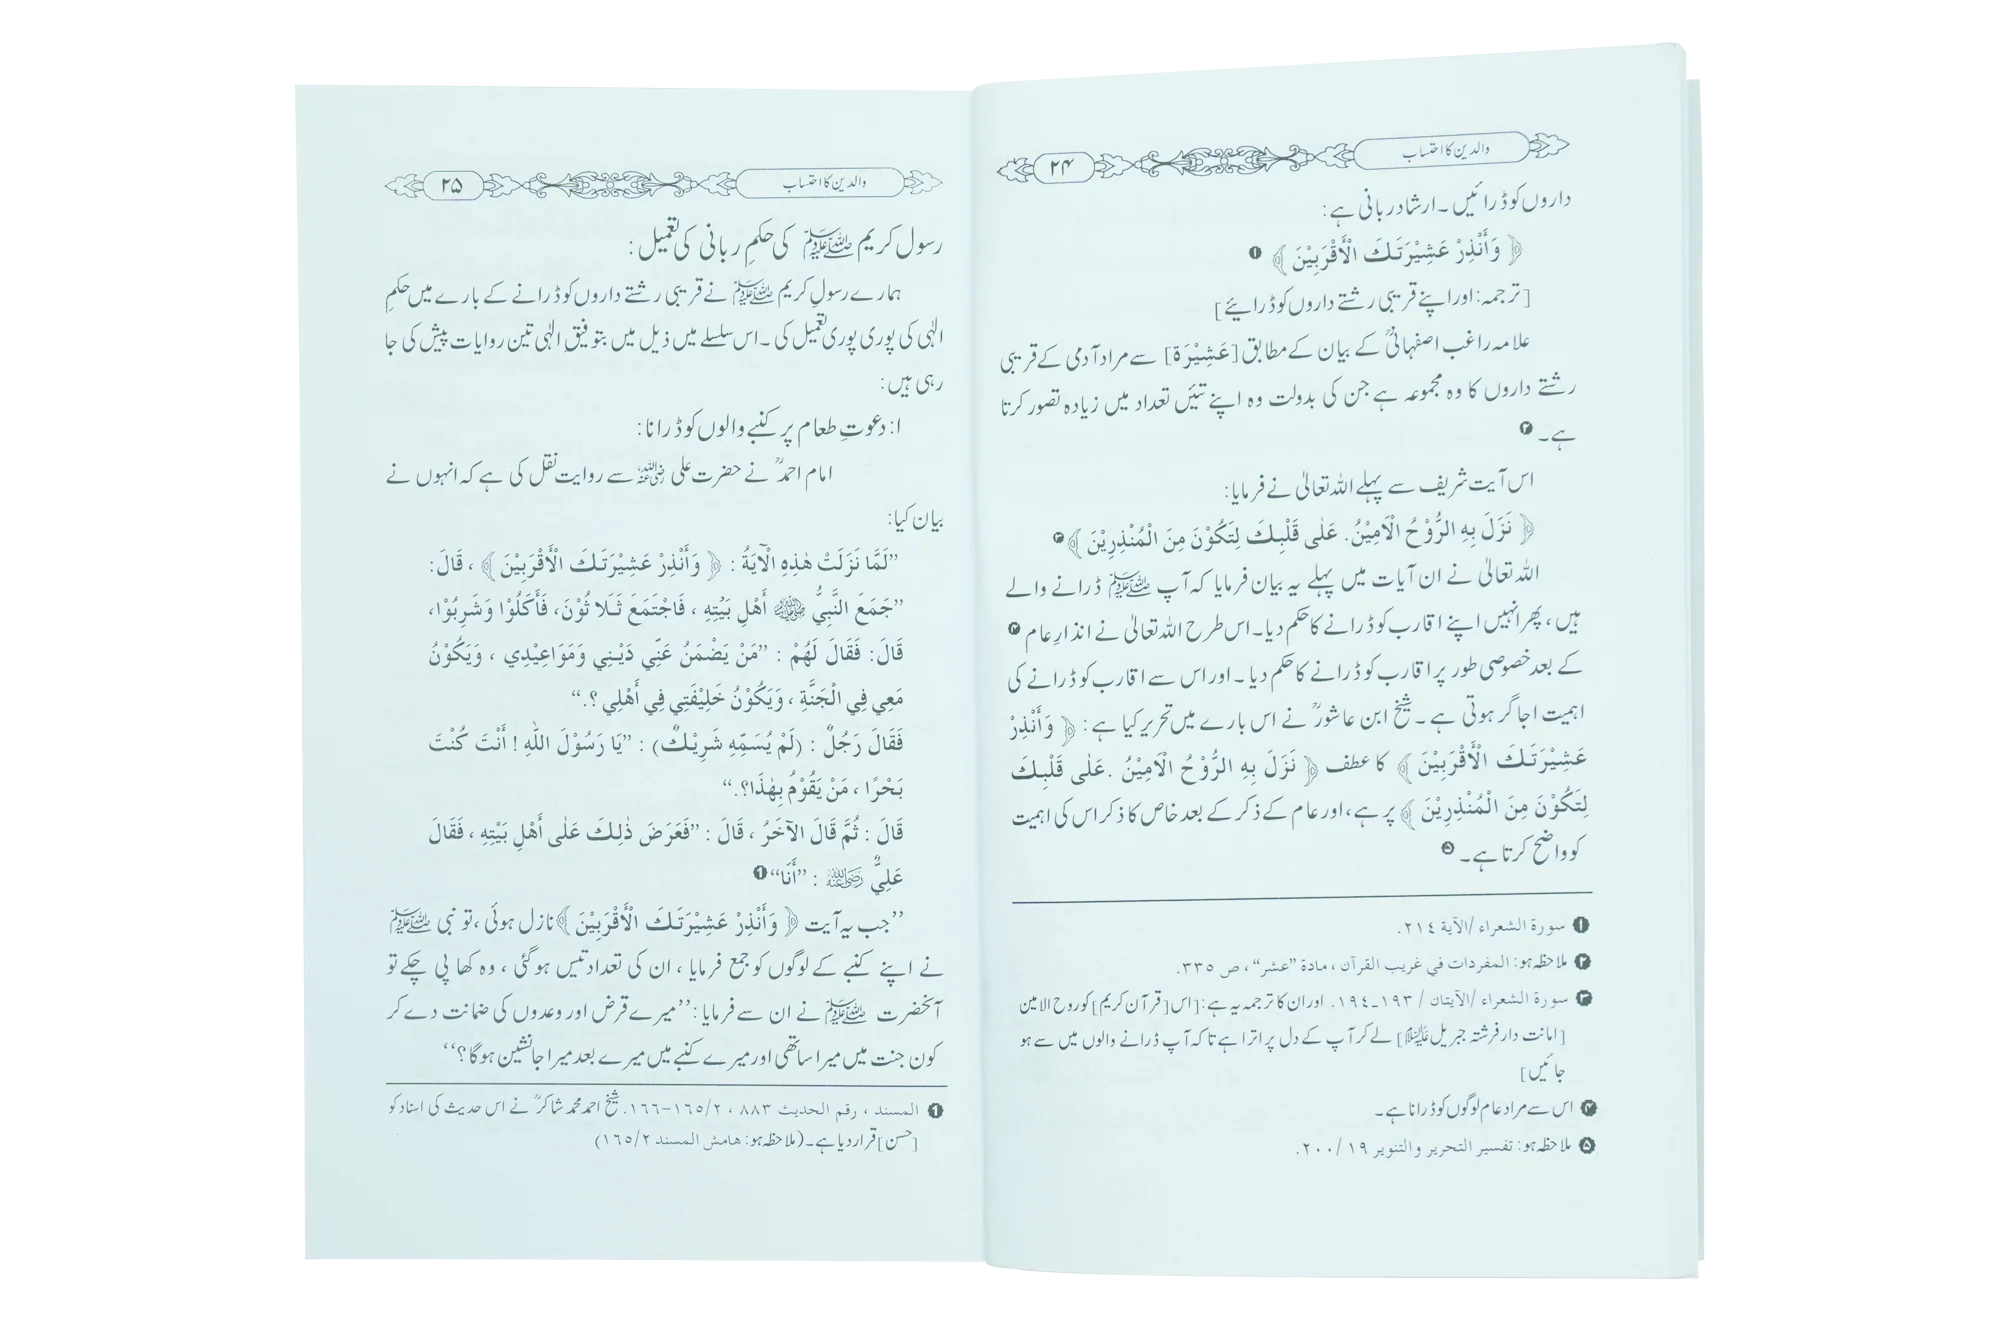 والدین کا احتساب ۲۴
داروں کو ڈرائیں۔ ارشاد ربانی ہے:
﴿ وَأَنْذِرْ عَشِيْرَتَكَ الْأَقْرَبِيْنَ ﴾ ❶
[ترجمہ: اور اپنے قریبی رشتے داروں کو ڈرایئے]
علامہ راغب اصفہانیؒ کے بیان کے مطابق [عَشِيْرَة] سے مراد آدمی کے قریبی
رشتے داروں کا وہ مجموعہ ہے جن کی بدولت وہ اپنے تئیں تعداد میں زیادہ تصور کرتا
ہے۔ ❷
اس آیت شریف سے پہلے اللہ تعالیٰ نے فرمایا:
﴿ نَزَلَ بِهِ الرُّوْحُ الْاَمِيْنُ. عَلٰى قَلْبِكَ لِتَكُوْنَ مِنَ الْمُنْذِرِيْنَ ﴾ ❸
اللہ تعالیٰ نے ان آیات میں پہلے یہ بیان فرمایا کہ آپ ﷺ ڈرانے والے
ہیں، پھر انہیں اپنے اقارب کو ڈرانے کا حکم دیا۔ اس طرح اللہ تعالیٰ نے انذارِ عام ❹
کے بعد خصوصی طور پر اقارب کو ڈرانے کا حکم دیا۔ اور اس سے اقارب کو ڈرانے کی
اہمیت اجاگر ہوتی ہے۔ شیخ ابن عاشورؒ نے اس بارے میں تحریر کیا ہے: ﴿ وَأَنْذِرْ
عَشِيْرَتَكَ الْأَقْرَبِيْنَ ﴾ کا عطف ﴿ نَزَلَ بِهِ الرُّوْحُ الْاَمِيْنُ .عَلٰى قَلْبِكَ
لِتَكُوْنَ مِنَ الْمُنْذِرِيْنَ ﴾ پر ہے، اور عام کے ذکر کے بعد خاص کا ذکر اس کی اہمیت
کو واضح کرتا ہے۔ ❺
❶ سورة الشعراء /الآية ٢١٤.
❷ ملاحظہ ہو: المفردات في غريب القرآن ، مادة ”عشر“ ، ص ٣٣٥.
❸ سورة الشعراء /الآيتان / ١٩٣ـ١٩٤. اور ان کا ترجمہ یہ ہے: [اس [قرآن کریم] کو روح الامین
[امانت دار فرشتہ جبریل علیہ السلام] لے کر آپ کے دل پر اترا ہے تاکہ آپ ڈرانے والوں میں سے ہو
جائیں]
❹ اس سے مراد عام لوگوں کو ڈرانا ہے۔
❺ ملاحظہ ہو: تفسير التحرير والتنوير ١٩/ ٢٠٠.
والدین کا احتساب ۲۵
رسول کریم ﷺ کی حکمِ ربانی کی تعمیل:
ہمارے رسولِ کریم ﷺ نے قریبی رشتے داروں کو ڈرانے کے بارے میں حکمِ
الٰہی کی پوری پوری تعمیل کی۔ اس سلسلے میں ذیل میں بتوفیقِ الٰہی تین روایات پیش کی جا
رہی ہیں:
۱: دعوتِ طعام پر کنبے والوں کو ڈرانا:
امام احمدؒ نے حضرت علی رضی اللہ عنہ سے روایت نقل کی ہے کہ انہوں نے
بیان کیا:
”لَمَّا نَزَلَتْ هٰذِهِ الْآيَةُ : ﴿ وَأَنْذِرْ عَشِيْرَتَكَ الْأَقْرَبِيْنَ ﴾ ، قَالَ:
”جَمَعَ النَّبِيُّ ﷺ أَهْلِ بَيْتِهِ ، فَاجْتَمَعَ ثَلَا ثُوْنَ، فَأَكَلُوْا وَشَرِبُوْا،
قَالَ: فَقَالَ لَهُمْ : ”مَنْ يَضْمَنُ عَنِّي دَيْنِي وَمَوَاعِيْدِي ، وَيَكُوْنُ
مَعِي فِي الْجَنَّةِ ، وَيَكُوْنُ خَلِيْفَتِي فِي أَهْلِي ؟.“
فَقَالَ رَجُلٌ : (لَمْ يُسَمِّهِ شَرِيْكٌ) : ”يَا رَسُوْلَ اللّٰهِ ! أَنْتَ كُنْتَ
بَحْرًا ، مَنْ يَقُوْمُ بِهٰذَا؟.“
قَالَ : ثُمَّ قَالَ الآخَرُ ، قَالَ : ”فَعَرَضَ ذٰلِكَ عَلٰى أَهْلِ بَيْتِهِ ، فَقَالَ
عَلِيٌّ رضی اللہ عنہ : ”أَنَا“❶
’’جب یہ آیت ﴿ وَأَنْذِرْ عَشِيْرَتَكَ الْأَقْرَبِيْنَ ﴾ نازل ہوئی، تو نبی ﷺ
نے اپنے کنبے کے لوگوں کو جمع فرمایا، ان کی تعداد تیس ہوگئی، وہ کھا پی چکے تو
آنحضرت ﷺ نے ان سے فرمایا: ’’میرے قرض اور وعدوں کی ضمانت دے کر
کون جنت میں میرا ساتھی اور میرے کنبے میں میرے بعد میرا جانشین ہوگا؟‘‘
❶ المسند ، رقم الحديث ٨٨٣ ، ١٦٥/٢-١٦٦. شیخ احمد محمد شاکرؒ نے اس حدیث کی اسناد کو
[حسن] قرار دیا ہے۔ (ملاحظہ ہو: هامش المسند ١٦٥/٢)